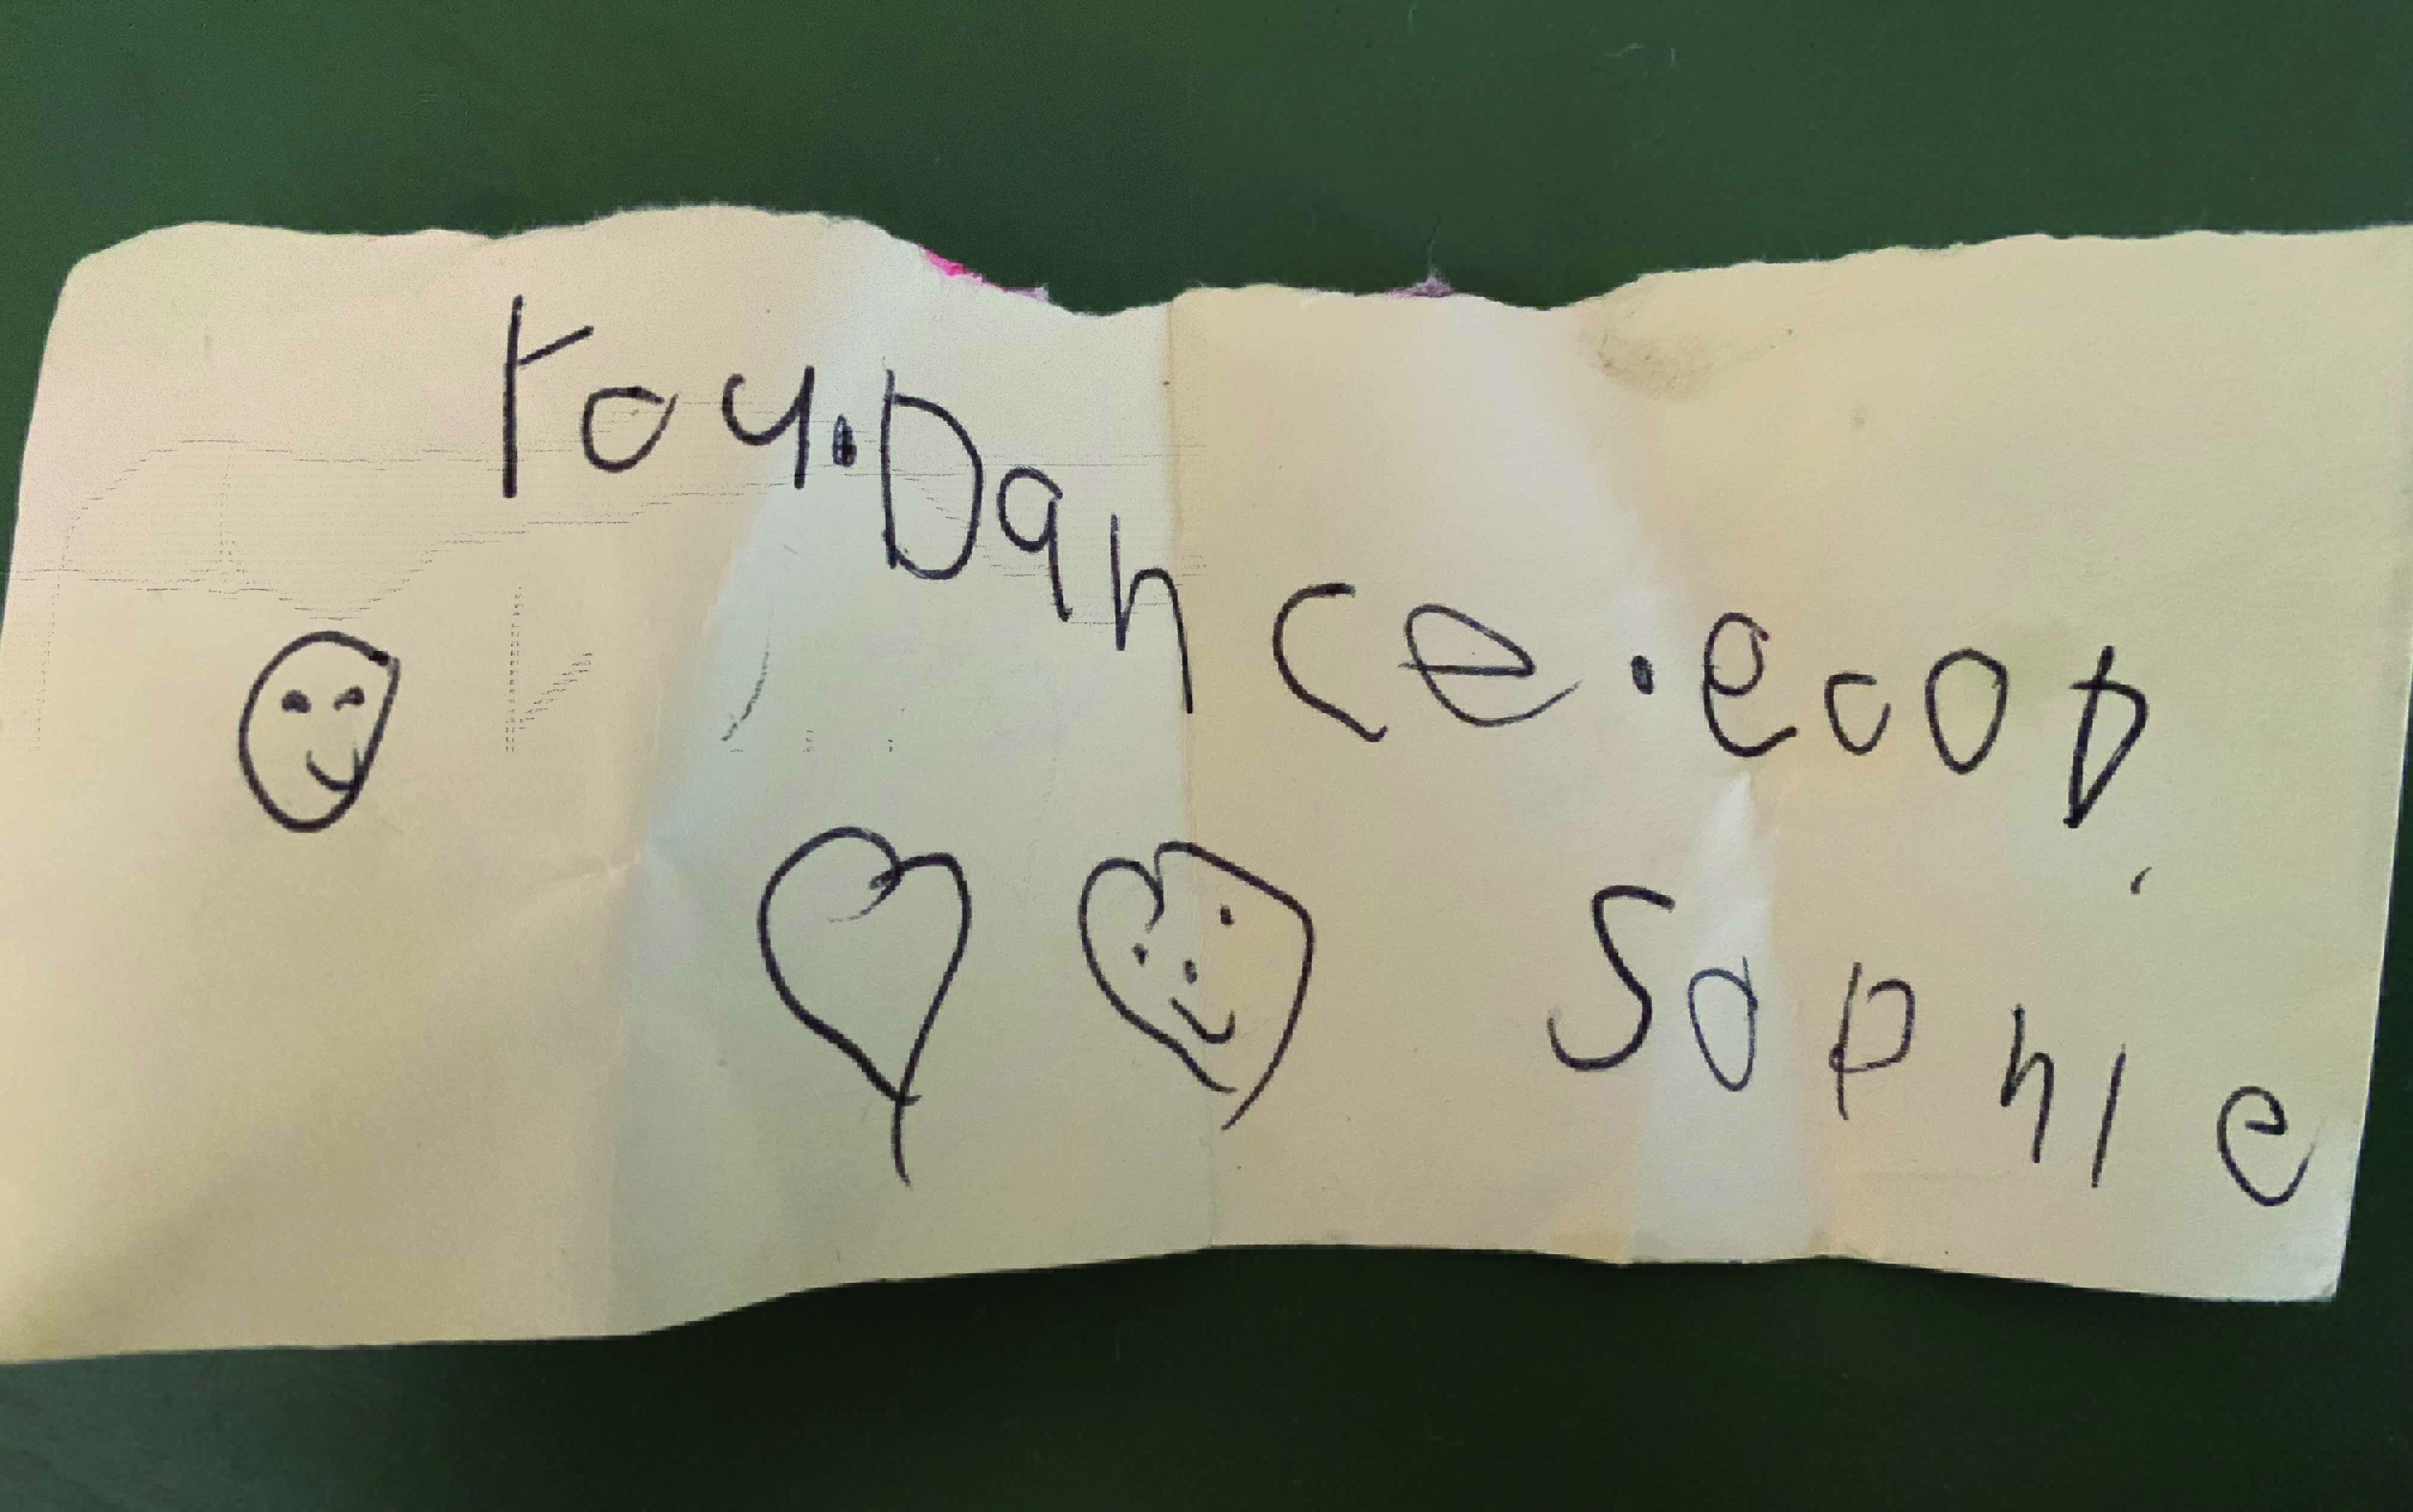 you.Dance.ecop
Sophie